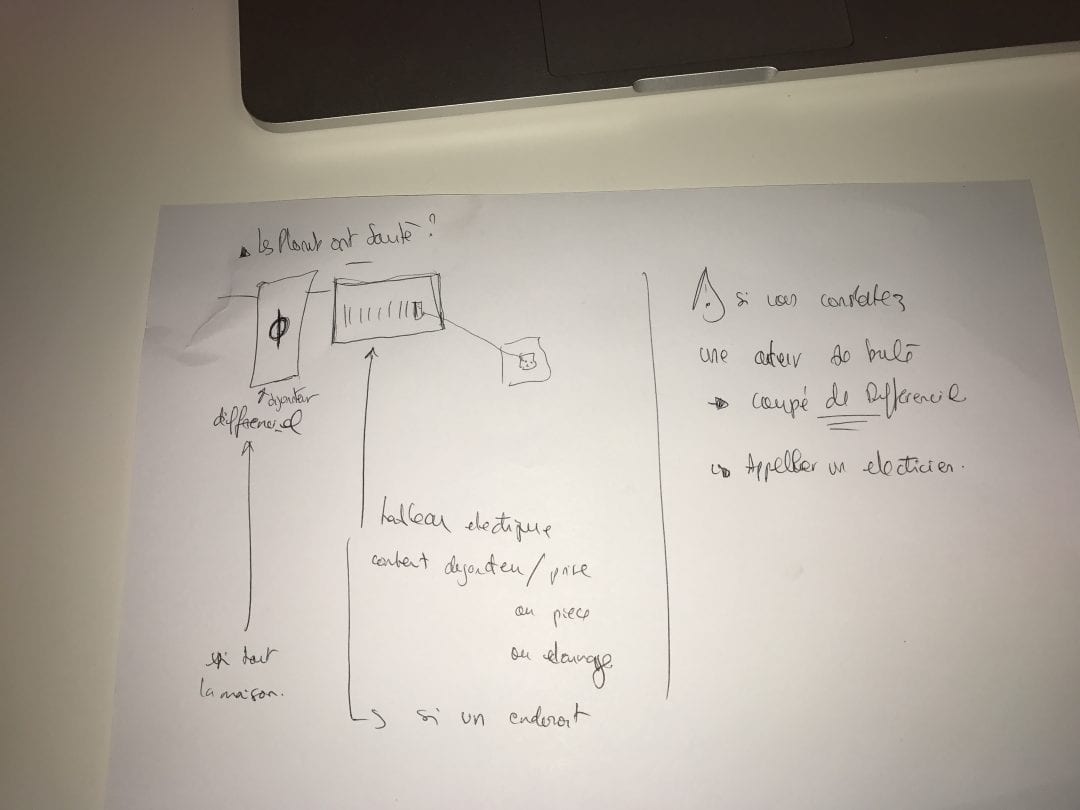 Les Plomb ont Sauté ?
disjoncteur
differenciel
si tout
la maison.
tableau electrique
contient disjoncteur / prise
ou piece
ou eclairage
si un endroit
si vous constatez
une odeur de brulé
coupé de Differenciel
Appeller un electricien.